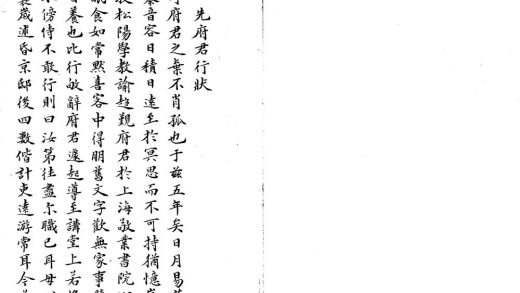 先府君行狀
府君之棄不肖孤也于茲五年矣日月易
音容日積日遠至於冥思而不可持猶憶
松陽學教諭趨覲府君於上海敬業書院
食如常點喜客中得朋舊文字歡無家事
養也比行敬辭府君遽起導至講堂上若
傍侍不敢行則曰汝第往盡尒職已耳毋
歲述昏京邸後四數偕計吏遠游常耳今